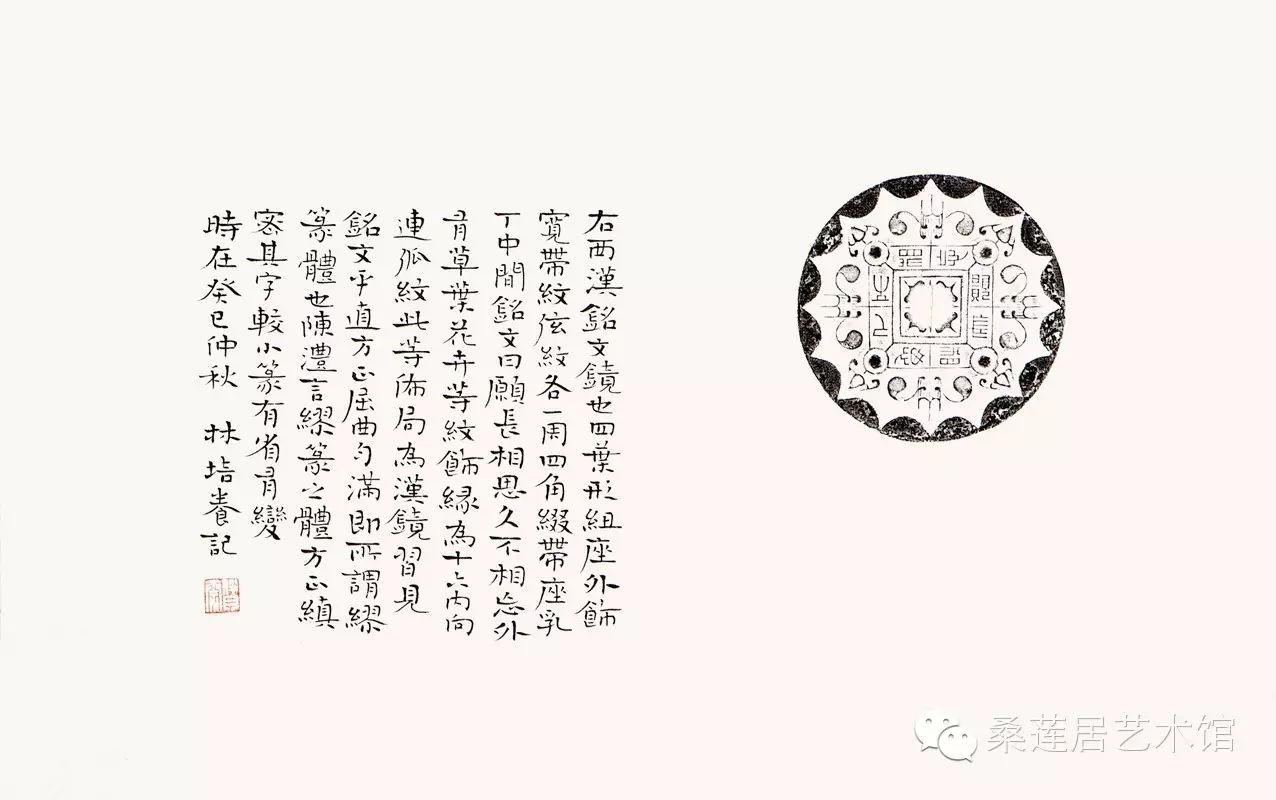 右西漢銘文鏡也四葉形紐座外飾
寬帶紋弦紋各一周四角綴帶座乳
丁中間銘文曰願長相思久不相忘外
有草葉花卉等紋飾緣為十六內向
連弧紋此等佈局為漢鏡習見
銘文平直方正屈曲勻滿即所謂繆
篆體也陳澧言繆篆之體方正縝
密其字較小篆有省有變
時在癸巳仲秋 林培養記
桑莲居艺术馆